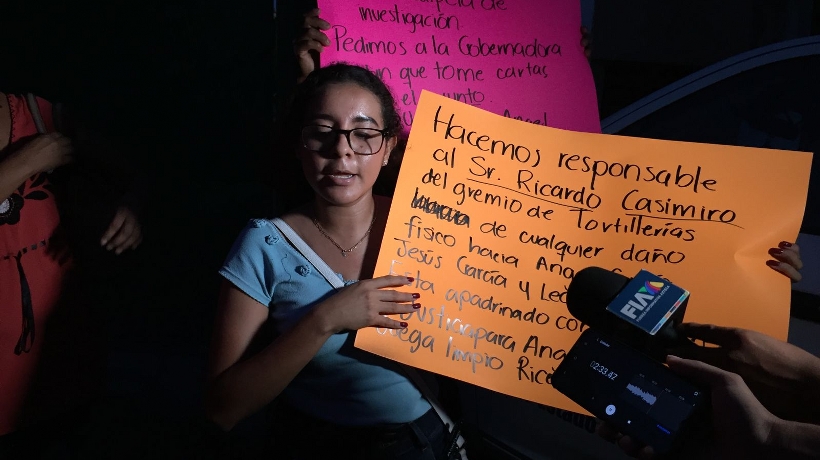 de
investigación.
Pedimos a la Gobernadora
que tome cartas
el
Angel
Hacemos responsable
al Sr. Ricardo Casimiro
del gremio de Tortillerías
de cualquier daño
físico hacia
Jesús García y
apadrinado
Justicia para
limpio
FIA
02:33.47